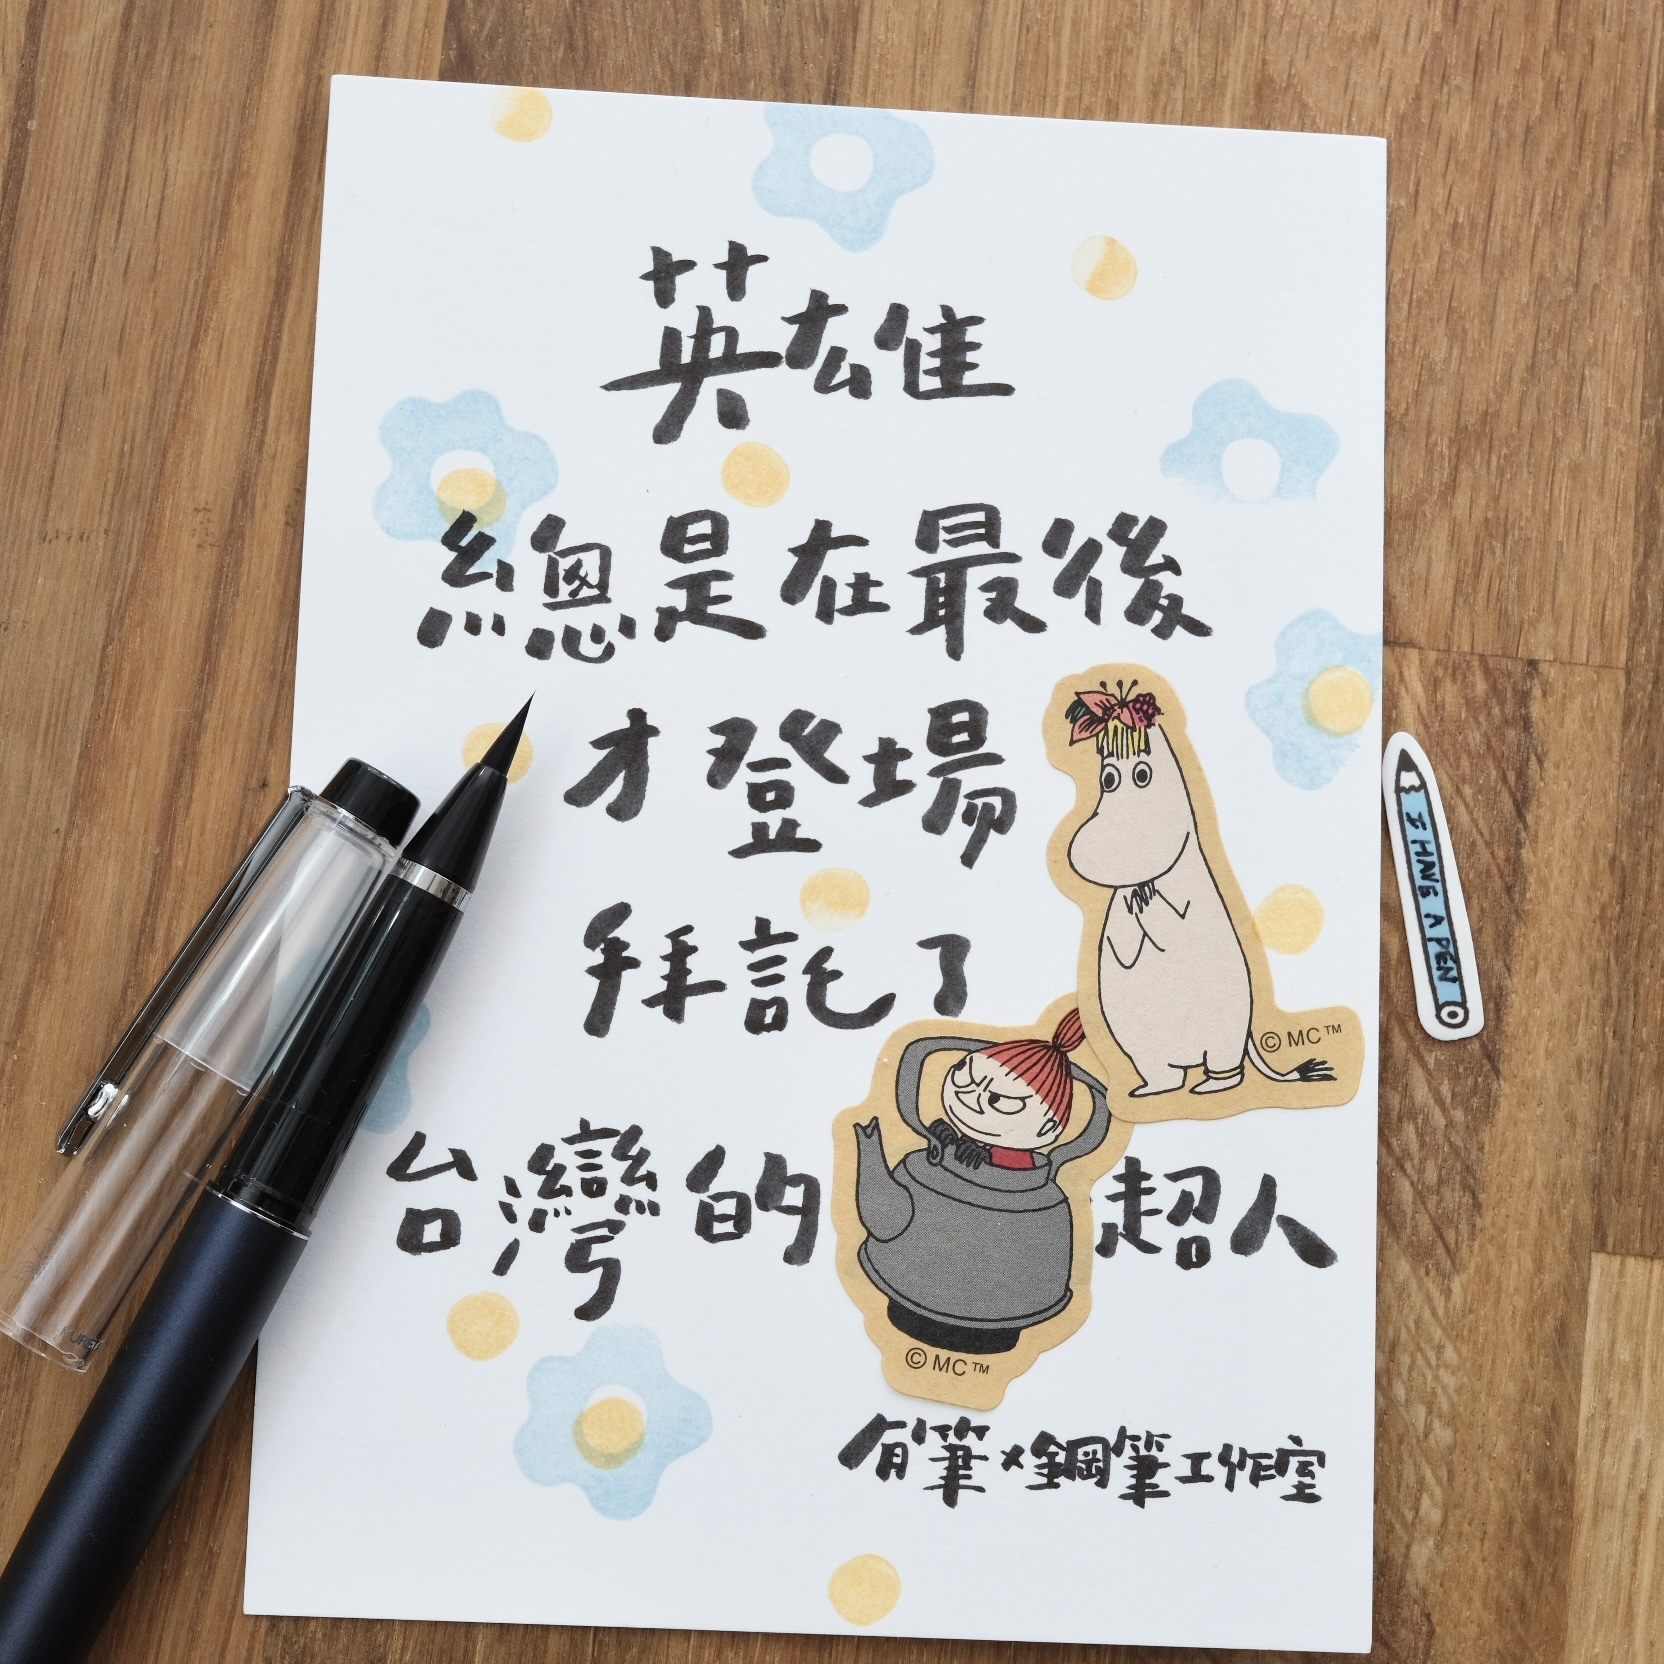 英雄
總是在最後
才登場
拜託了
台灣的超人
有筆×鋼筆工作室
© MC™
© MC™
I HAVE A PEN